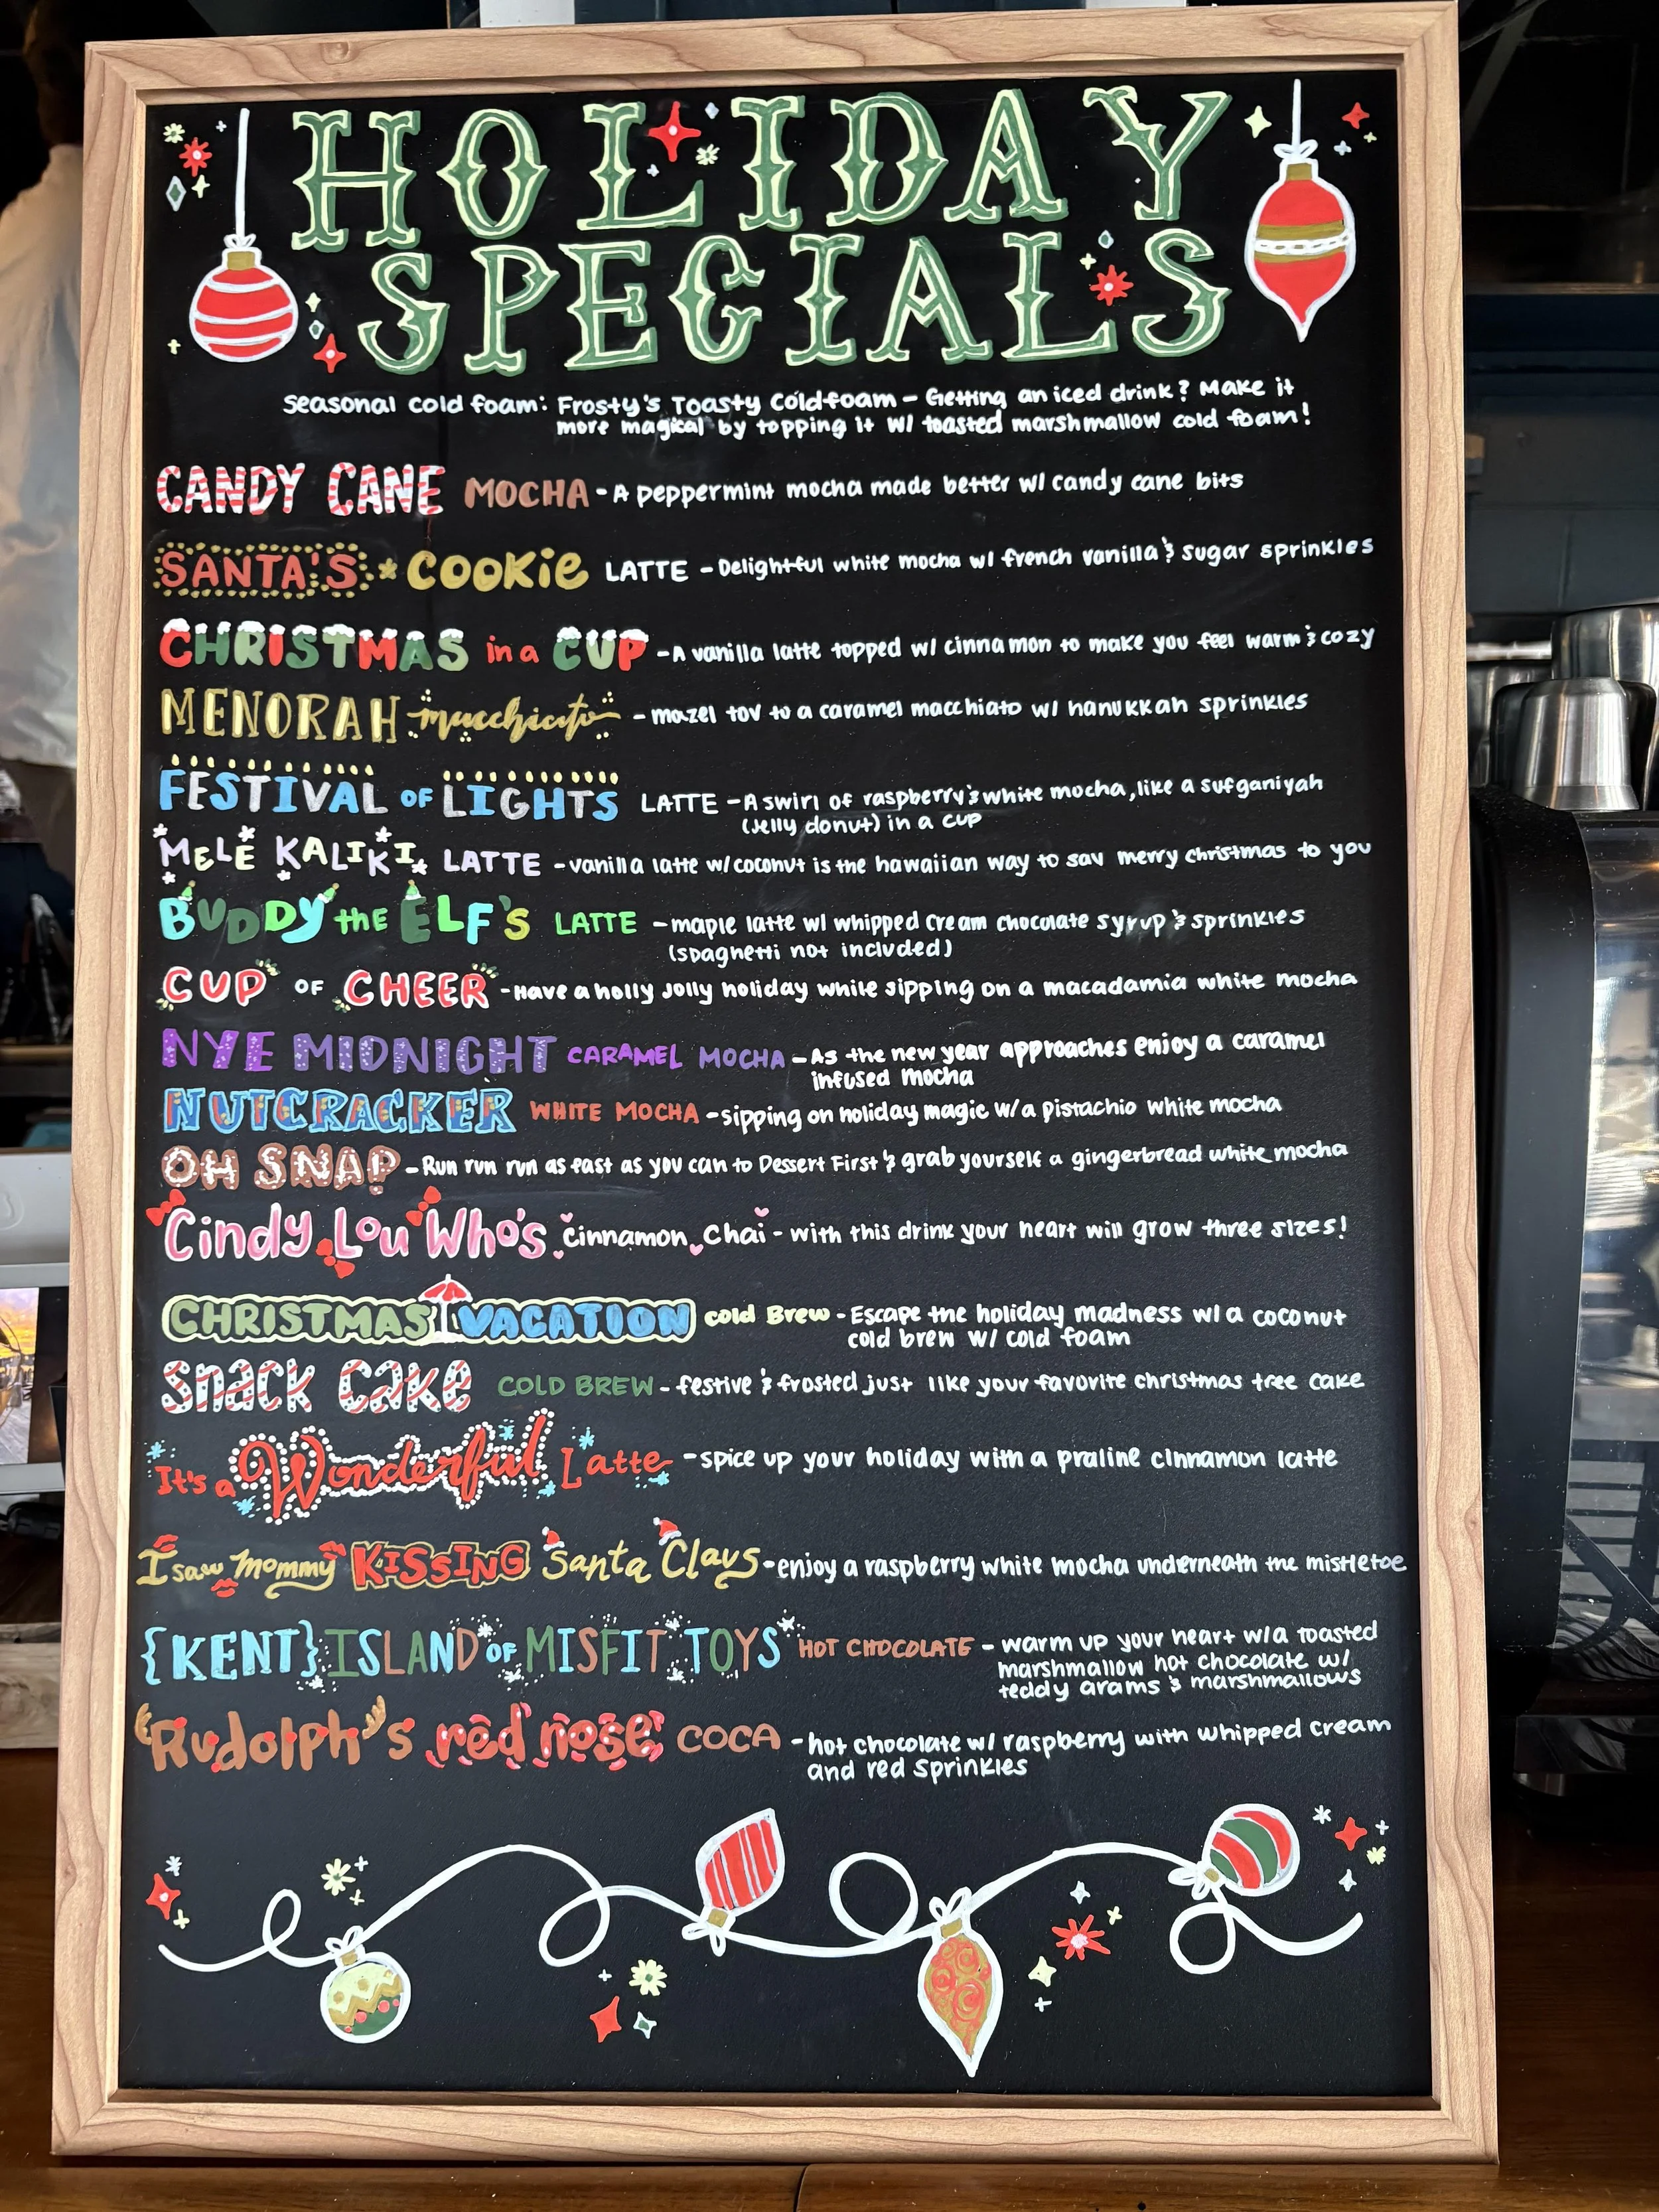 HOLIDAY
SPECIALS
Seasonal cold foam: Frosty's Toasty Coldfoam - Getting an iced drink? Make it
more magical by topping it w/ toasted marshmallow cold foam!
CANDY CANE MOCHA - A peppermint mocha made better w/ candy cane bits
SANTA'S COOKIE LATTE - Delightful white mocha w/ french vanilla & sugar sprinkles
CHRISTMAS in a CUP - A vanilla latte topped w/ cinnamon to make you feel warm & cozy
MENORAH macchiato - mazel tov to a caramel macchiato w/ hanukkah sprinkles
FESTIVAL OF LIGHTS LATTE - A swirl of raspberry & white mocha, like a sufganiyah
(Jelly donut) in a cup
MELE KALIKI LATTE - vanilla latte w/ coconut is the hawaiian way to say merry christmas to you
BUDDY the ELF'S LATTE - maple latte w/ whipped cream chocolate syrup & sprinkles
(spaghetti not included)
CUP OF CHEER - Have a holly jolly holiday while sipping on a macadamia white mocha
NYE MIDNIGHT CARAMEL MOCHA - As the new year approaches enjoy a caramel
infused mocha
NUTCRACKER WHITE MOCHA - sipping on holiday magic w/ a pistachio white mocha
OH SNAP - Run run run as fast as you can to Dessert First & grab yourself a gingerbread white mocha
Cindy Lou Who's Cinnamon Chai - with this drink your heart will grow three sizes!
CHRISTMAS VACATION cold Brew - Escape the holiday madness w/ a coconut
cold brew w/ cold foam
Snack Cake COLD BREW - festive & frosted just like your favorite christmas tree cake
It's a Wonderful Latte - spice up your holiday with a praline cinnamon latte
I saw Mommy KISSING Santa Claus - enjoy a raspberry white mocha underneath the mistletoe
{KENT} ISLAND OF MISFIT TOYS HOT CHOCOLATE - warm up your heart w/ a toasted
marshmallow hot chocolate w/
teddy grams & marshmallows
Rudolph's red nose COCA - hot chocolate w/ raspberry with whipped cream
and red sprinkles